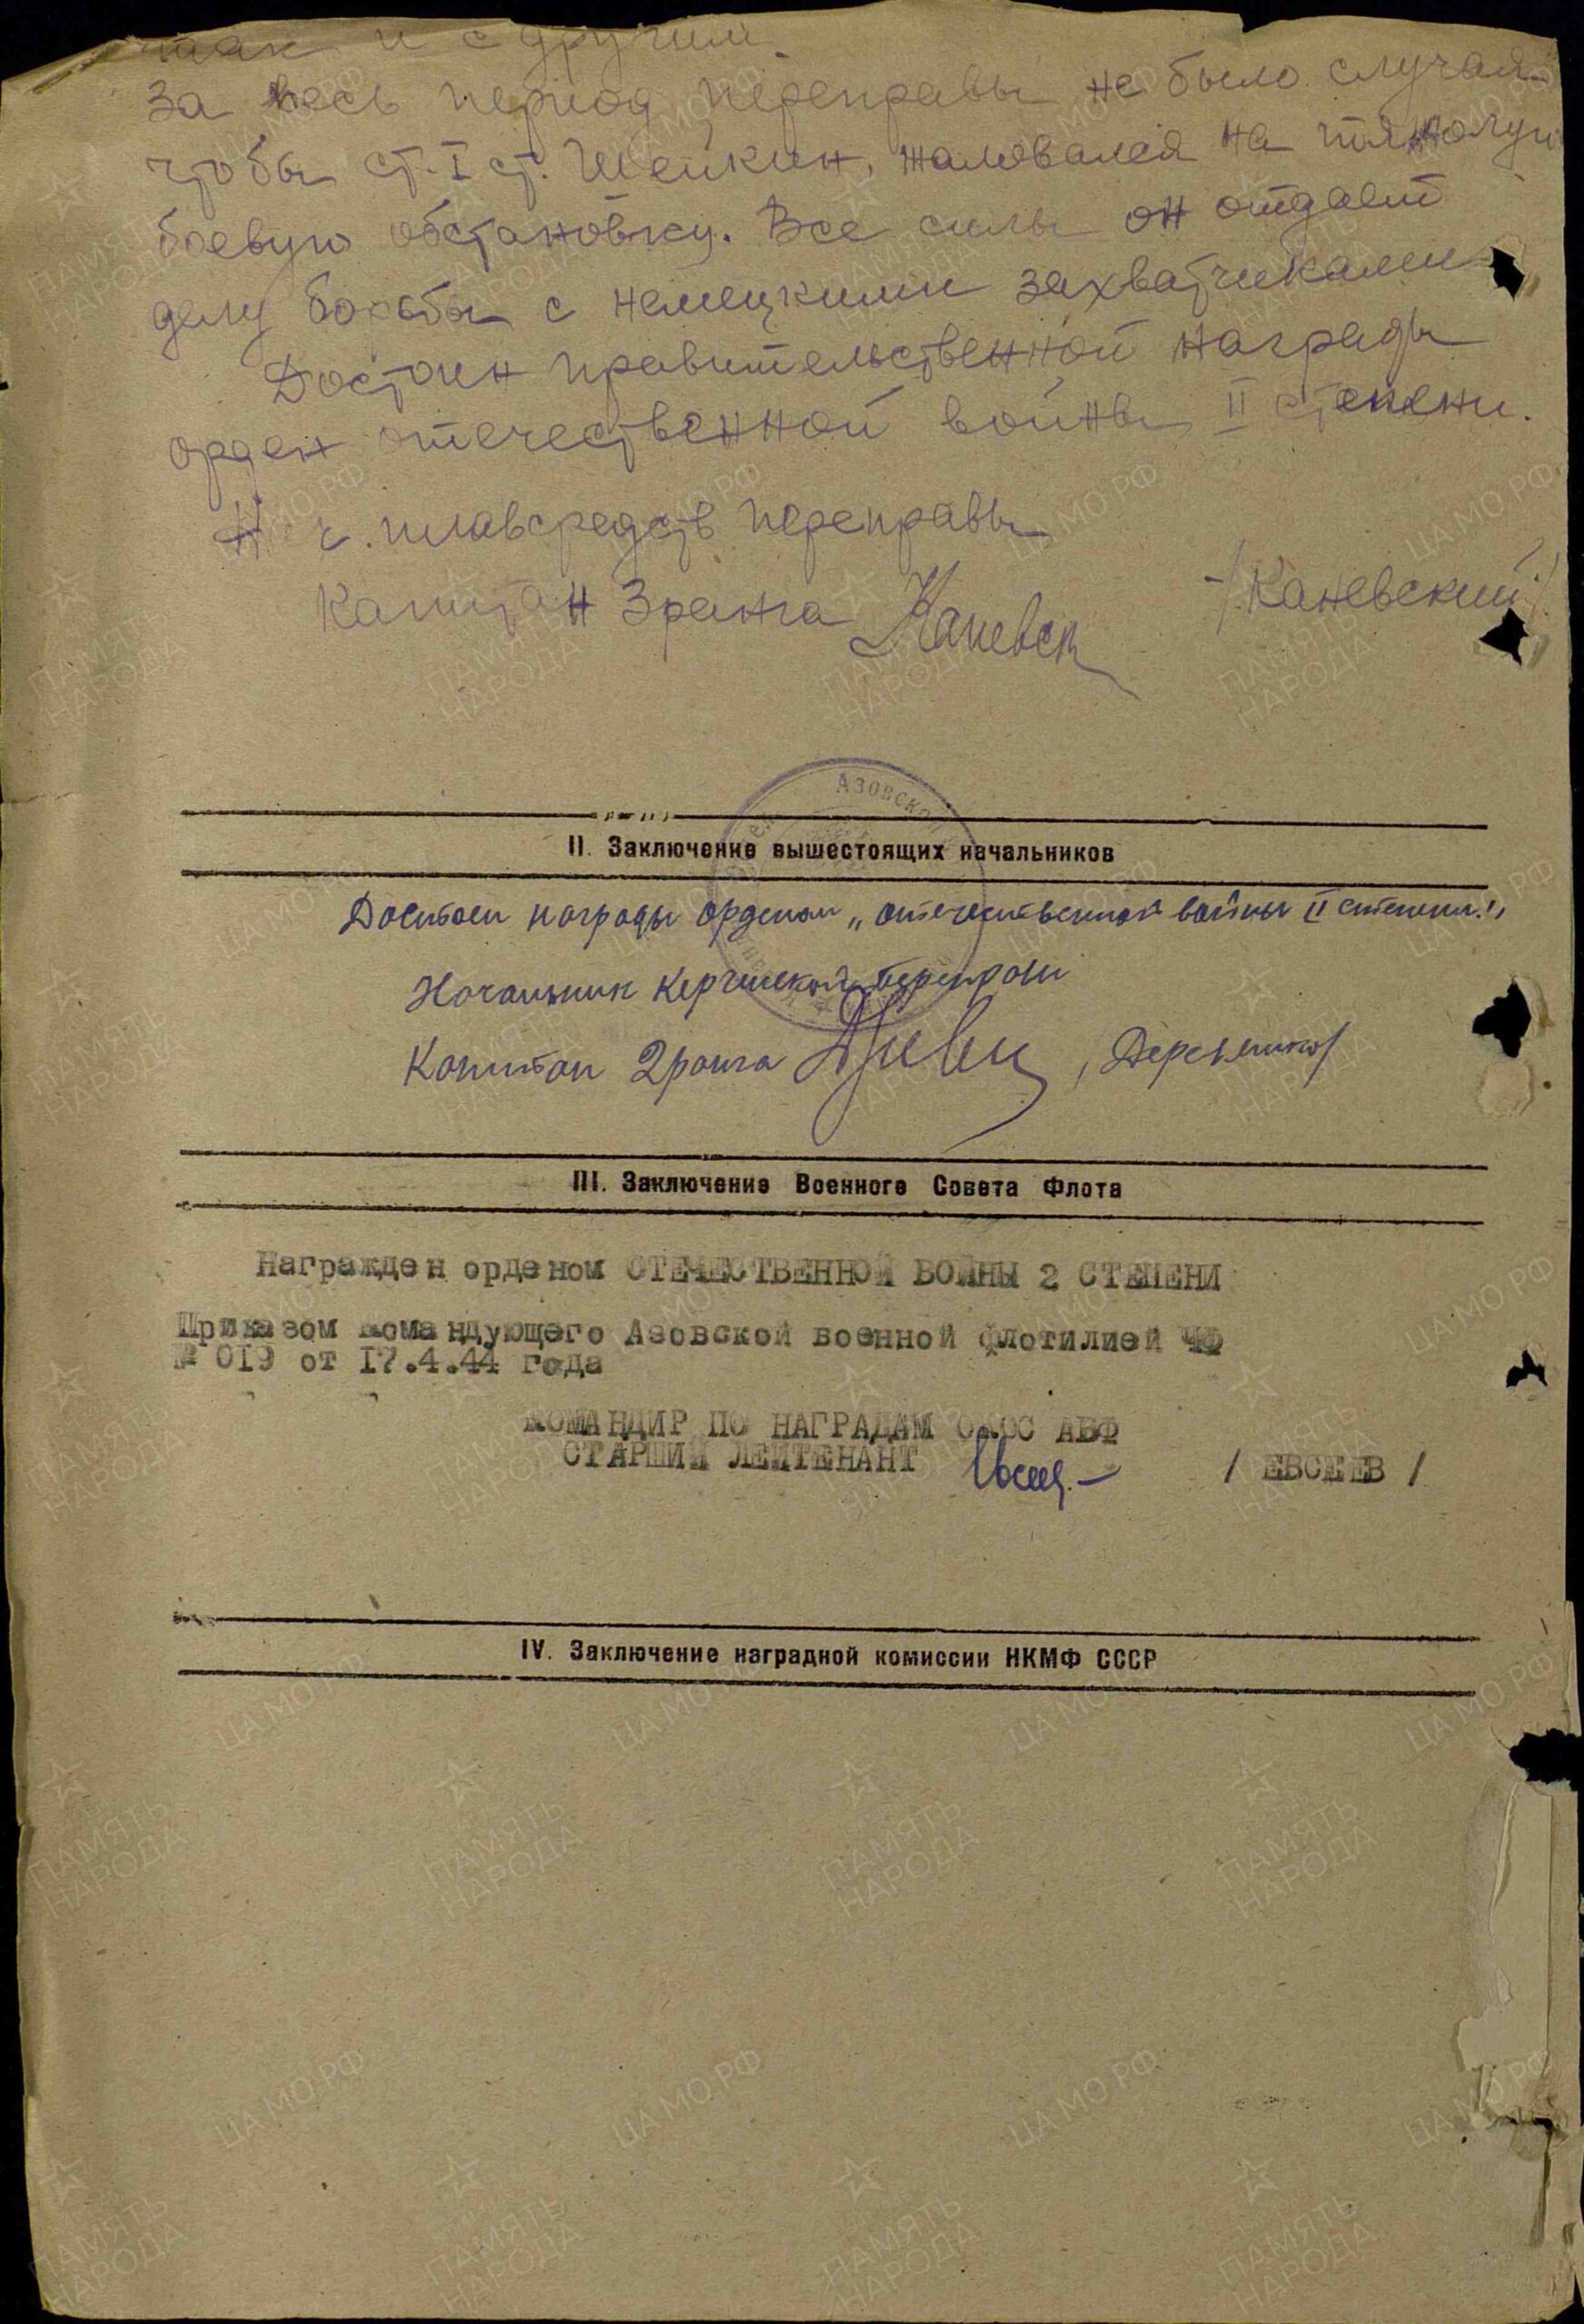 так и с другими.
За весь период переправы не было случая
чтобы ст. I ст. Шейкин, жаловался на тяжолую
боевую обстановку. Все силы он отдает
делу борьбы с немецкими захватчиками
Достоин правительственной награды
орден отечественной войны II степени.
Н-к. плавсредств переправы
Капитан 3 ранга Каневск /Каневский/
АЗОВСКО
II. Заключение вышестоящих начальников
Достоин награды орденом „отечественной войны II степени."
Начальник Керченской Переправы
Капитан 2 ранга
III. Заключение Военного Совета Флота
Награжден орденом ОТЕЧЕСТВЕННОЙ ВОЙНЫ 2 СТЕПЕНИ
Приказом Командующего Азовской военной флотилией ЧФ
№ 019 от 17.4.44 года
КОМАНДИР ПО НАГРАДАМ АВФ
СТАРШИЙ ЛЕЙТЕНАНТ / ЕВСЕЕВ /
IV. Заключение наградной комиссии НКМФ СССР
ПАМЯТЬ НАРОДА
ЦА МО РФ